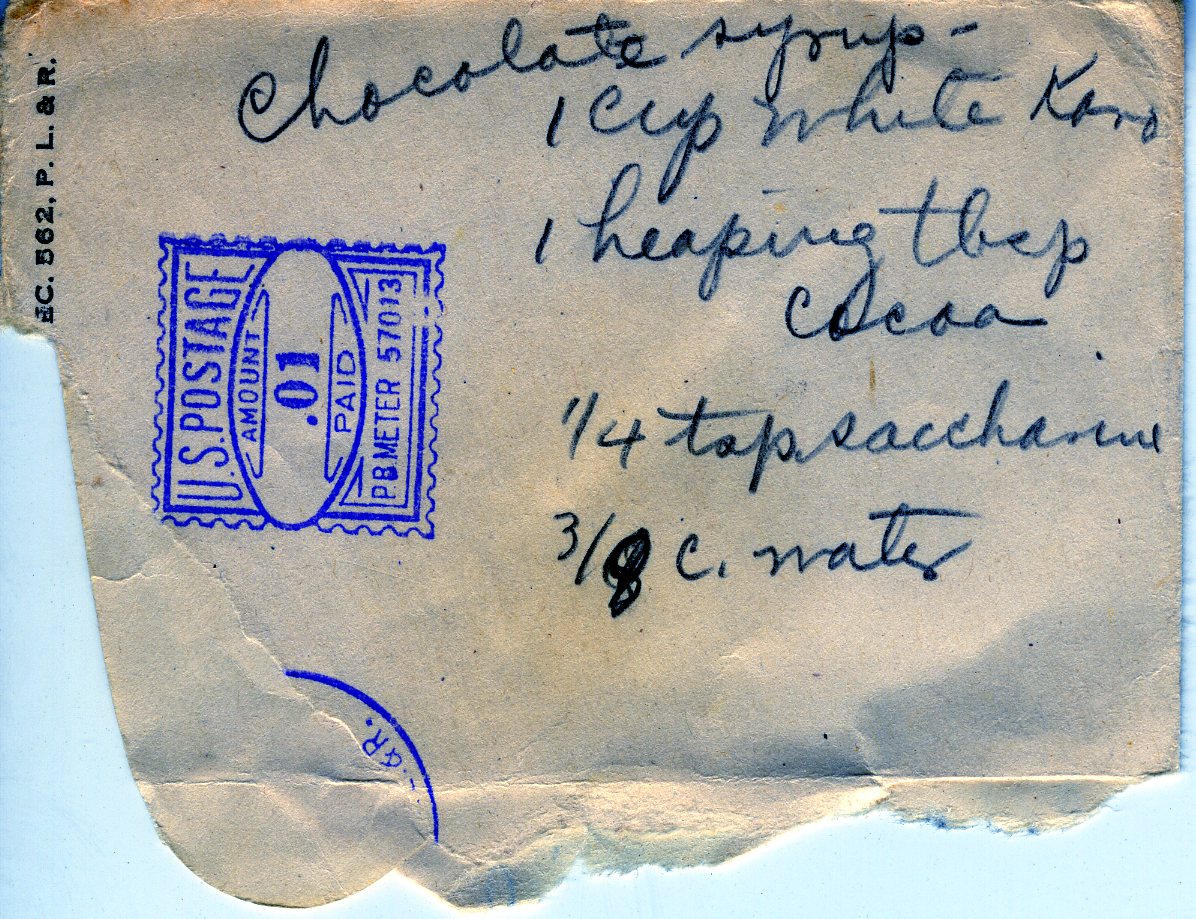 Chocolate syrup -
1 cup white Karo
1 heaping tbsp
cocoa
1/4 tsp saccharine
3/8 c. water
EC. 562, P. L. & R.
U.S. POSTAGE
AMOUNT
.01
PAID
P.B. METER 57013
& R.